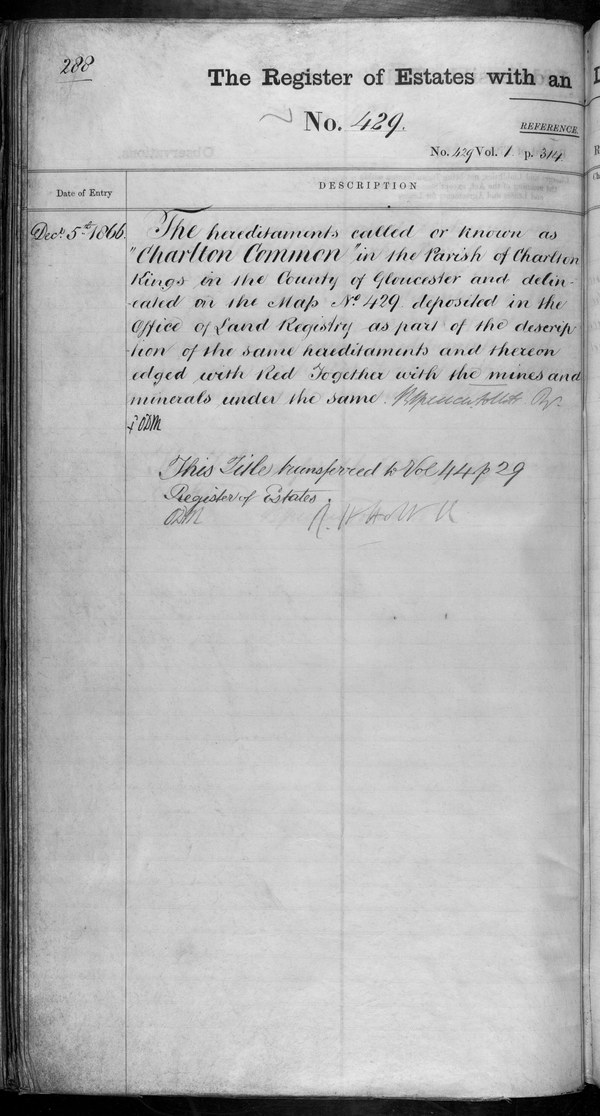 288
The Register of Estates with an
No. 429.
REFERENCE
No. 429 Vol. 1. p. 314
Date of Entry
DESCRIPTION
Decr. 5th 1866.
The hereditaments called or known as
"Charlton Common" in the Parish of Charlton
Kings in the County of Gloucester and delin-
-eated on the Map No. 429 deposited in the
Office of Land Registry as part of the descrip-
-tion of the same hereditaments and thereon
edged with Red Together with the mines and
minerals under the same.
This Title transferred to Vol 44 p 29
Register of Estates.